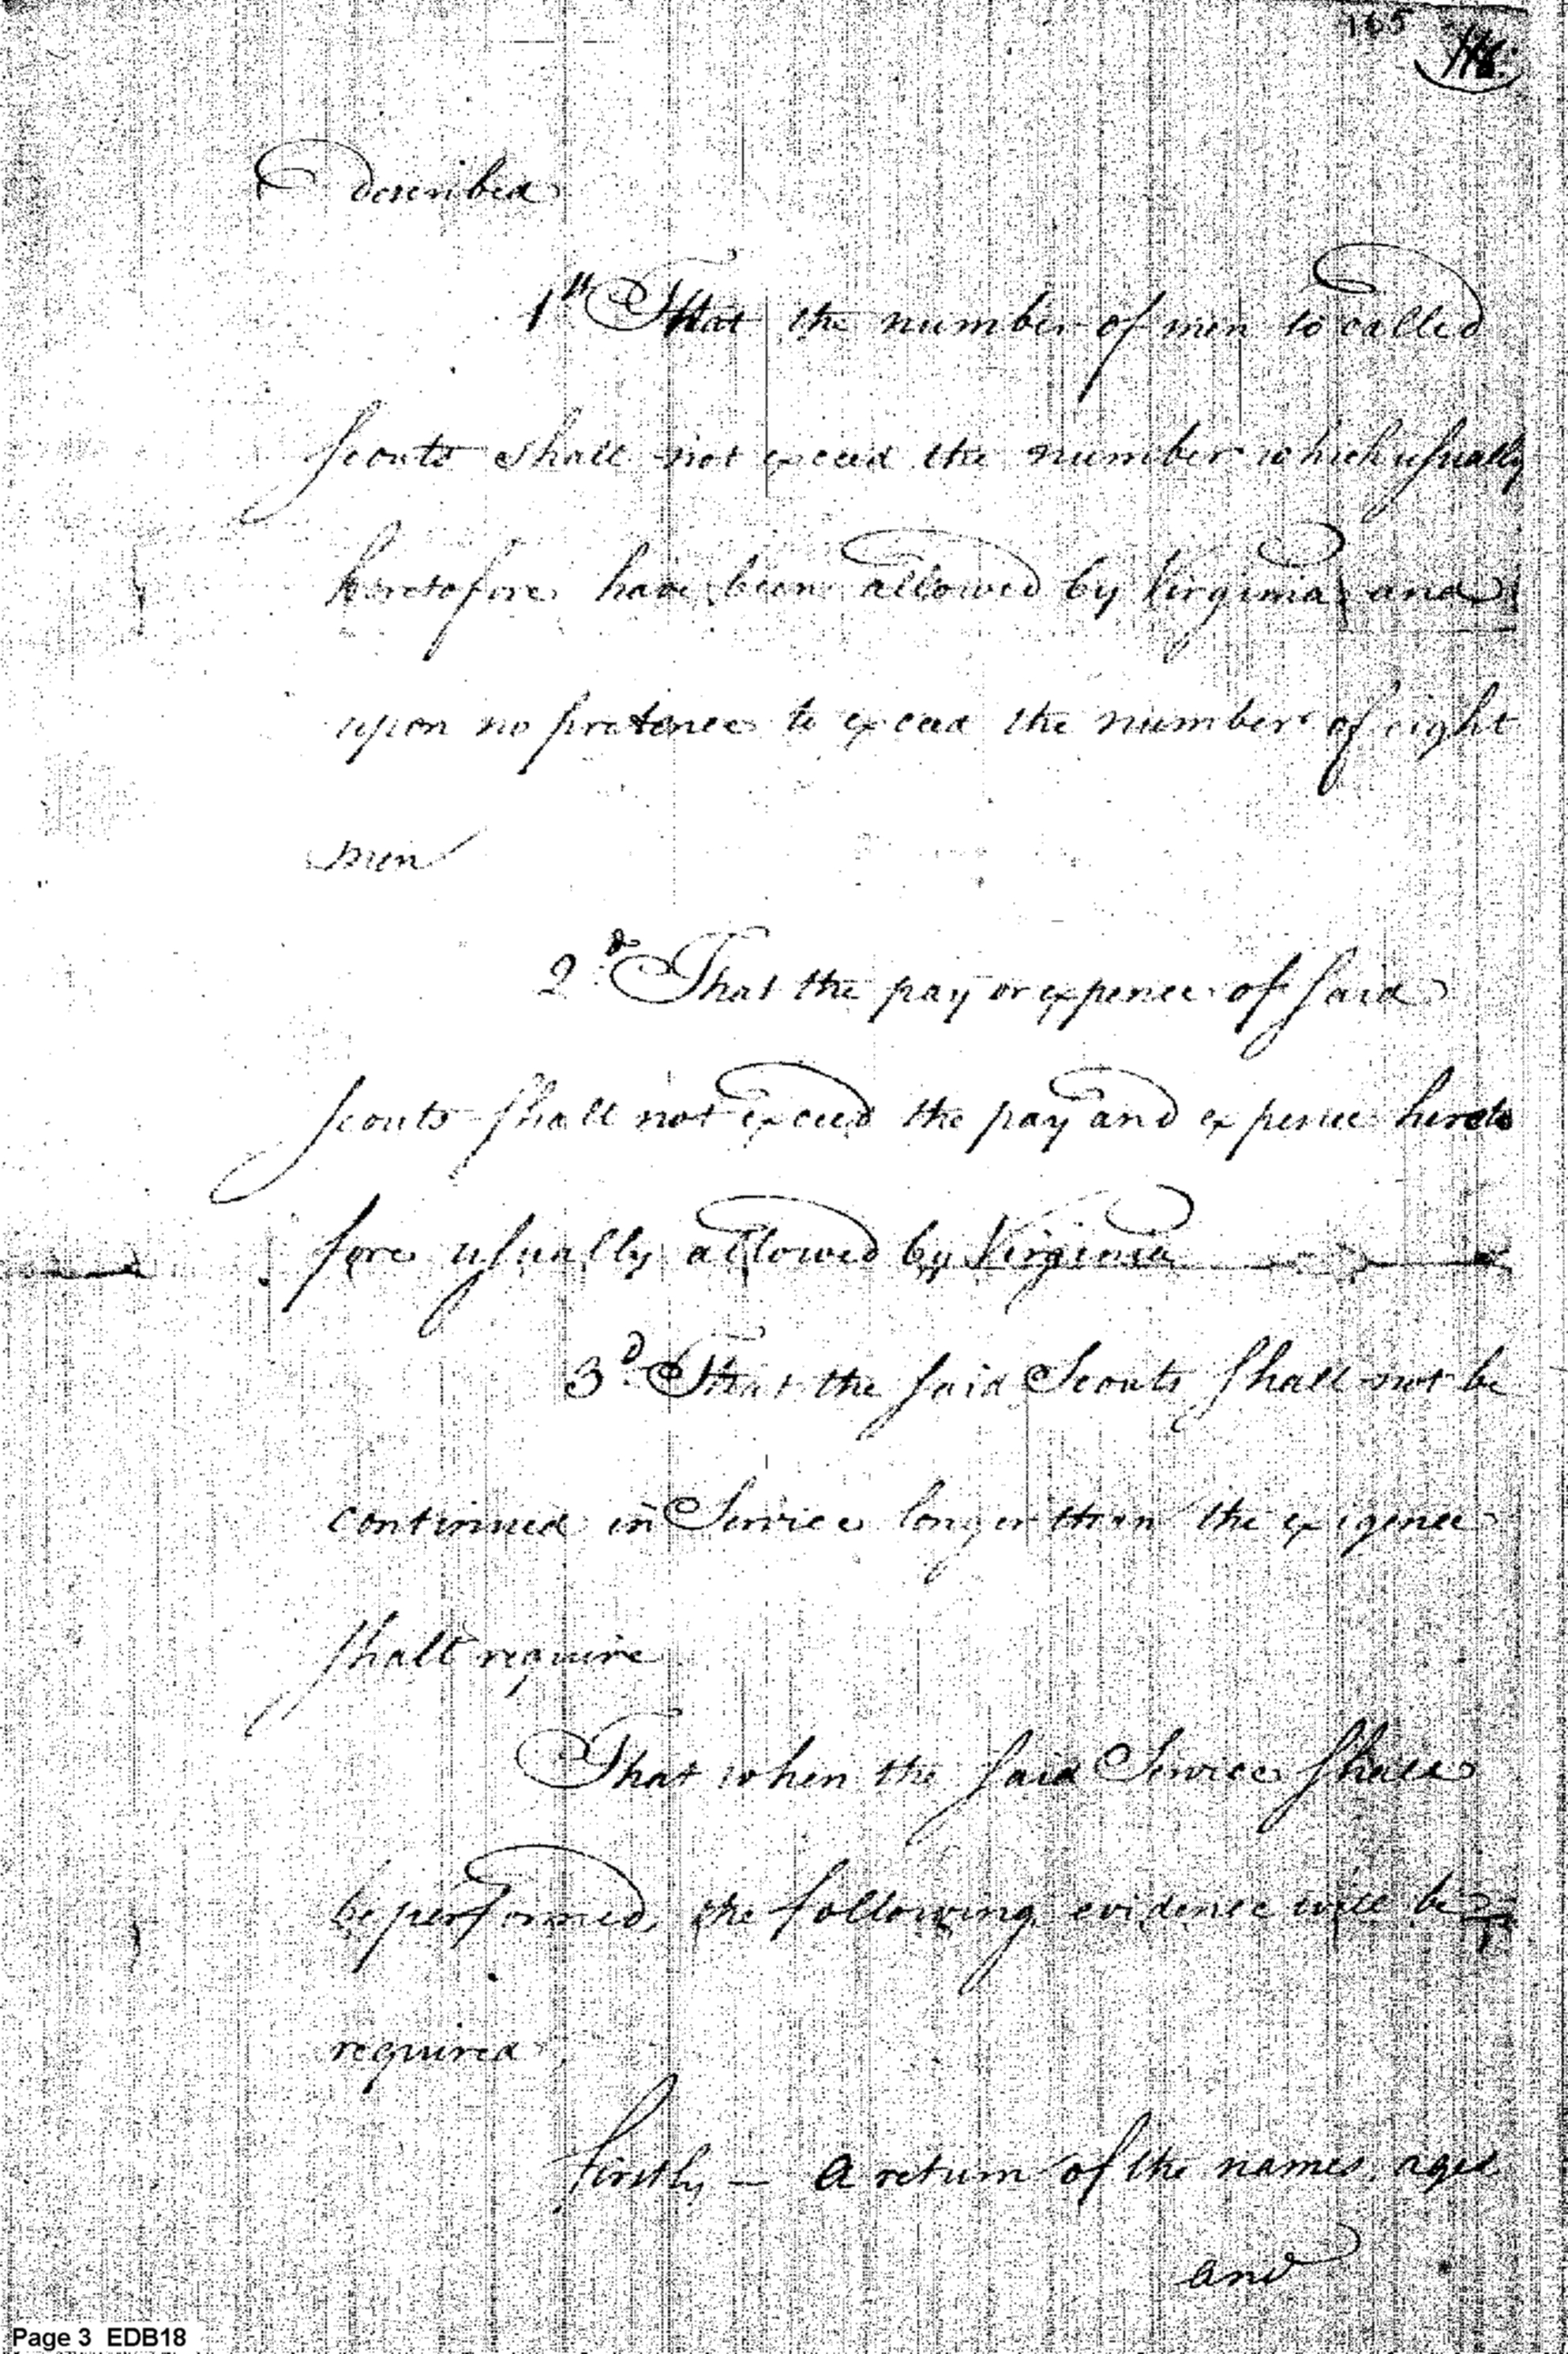 165
described
1st That the number of men to called
scouts shall not exceed the number which usually
heretofore have been allowed by Virginia and
upon no pretence to exceed the number of eight
men
2d That the pay or expence of said
scouts shall not exceed the pay and expence hereto
fore usually allowed by Virginia
3d That the said Scouts shall not be
continued in Service longer than the exigence
shall require
That when the said Service shall
be performed, the following evidence will be
required
firstly — A return of the names, ages
and
Page 3 EDB18